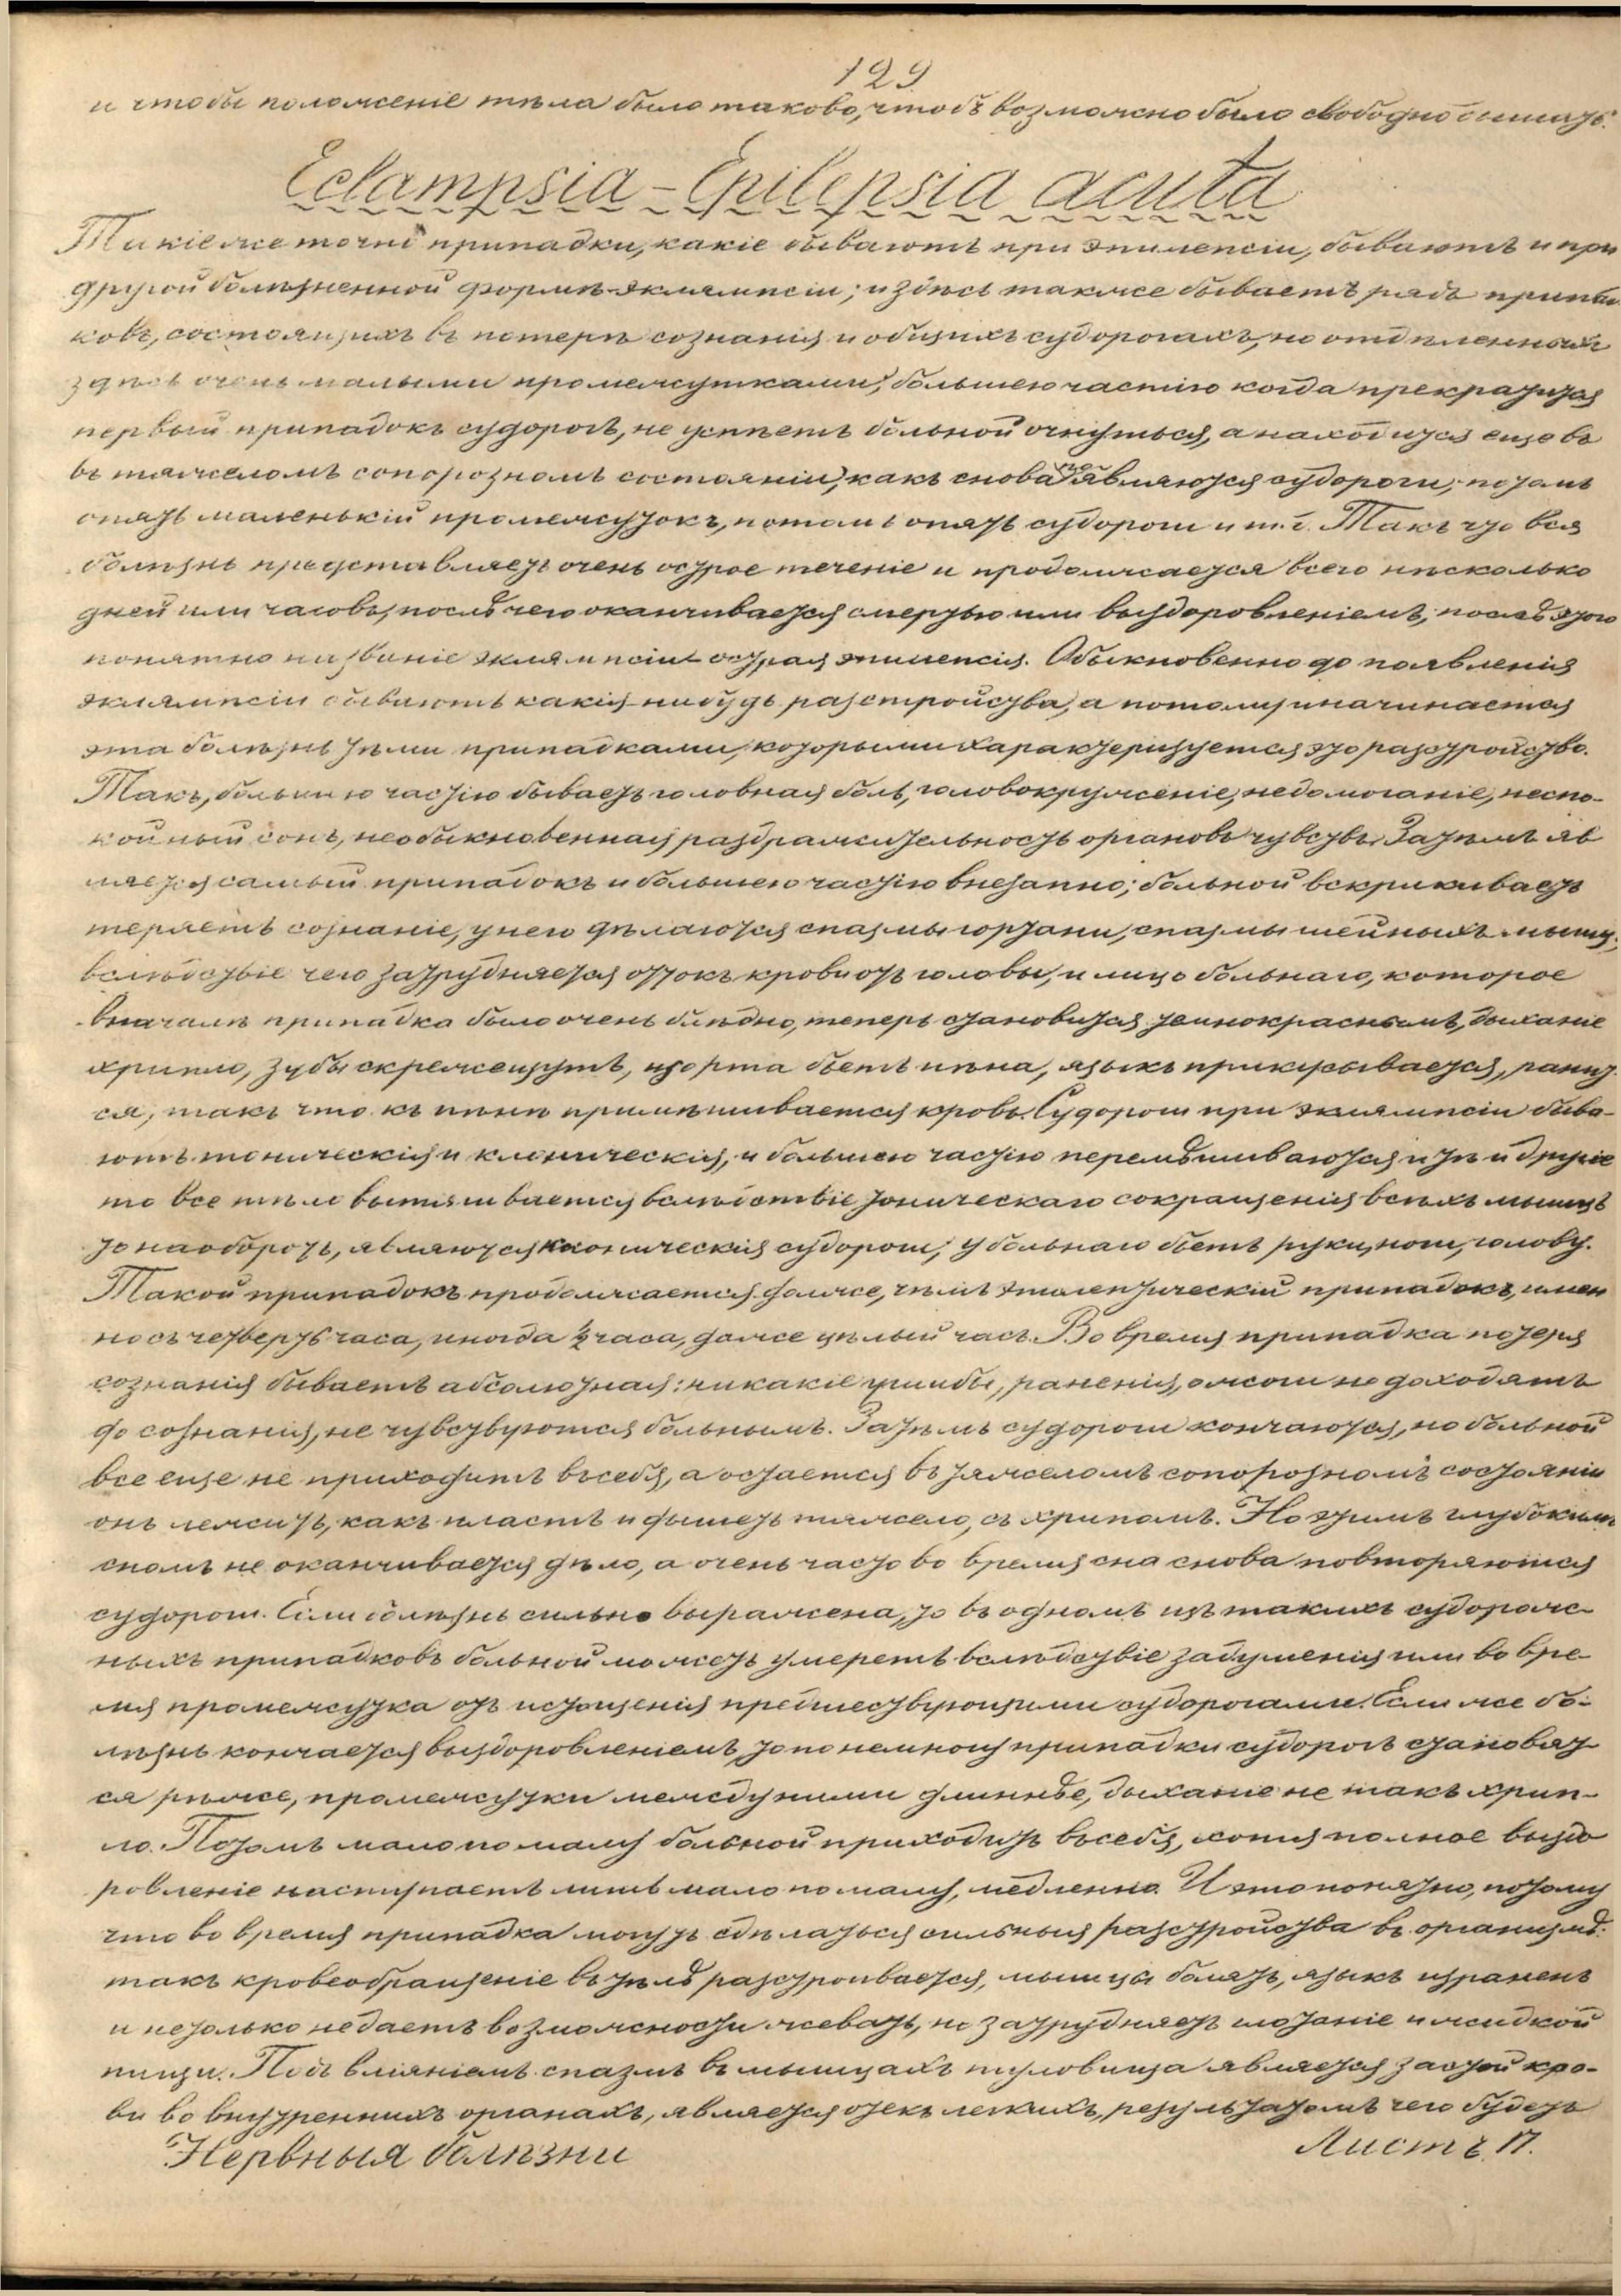 129
и чтобы положеніе тѣла было таково, чтобъ возможно было свободно дышать.
Eclampsia - Epilepsia acuta
Такіе же точно припадки, какіе бываютъ при эпилепсіи, бываютъ и при
другой болѣзненной формѣ эклямпсіи; и здѣсь также бываетъ рядъ припад
ковъ, состоящихъ въ потерѣ сознанія и общихъ судорогахъ, но отдѣленныхъ
здѣсь очень малыми промежутками, большею частію когда прекратится
первый припадокъ судорогъ, не успѣетъ больной очнуться, а находится еще въ
въ тяжеломъ сопорозномъ состояніи, какъ снова появляются судороги, потомъ
опять маленькій промежутокъ, потомъ опять судороги и т. д. Такъ что вся
болѣзнь представляетъ очень острое теченіе и продолжается всего нѣсколько
дней или часовъ, послѣ чего оканчивается смертью или выздоровленіемъ, послѣ этого
понятно названіе эклямпсіи острая эпилепсія. Обыкновенно до появленія
эклямпсіи бываютъ какія нибудь разстройства, а потому и начинается
эта болѣзнь тѣми припадками, которыми характеризуется это разстройство.
Такъ, большею частію бываетъ головная боль, головокруженіе, недомоганіе, неспо-
койный сонъ, необыкновенная раздражительность органовъ чувствъ. Затѣмъ яв
ляется самый припадокъ и большею частію внезапно; больной вскрикиваетъ
теряетъ сознаніе, у него дѣлаются спазмы гортани, спазмы шейныхъ мышц.
вслѣдствіе чего затрудняется оттокъ крови отъ головы, и лицо больнаго, которое
вначалѣ припадка было очень блѣдно, теперь становится темнокраснымъ, дыханіе
хрипло, зубы скрежещутъ, изо рта бьетъ пѣна, языкъ прикусывается, ранит
ся, такъ что къ пѣнѣ примѣшивается кровь. Судороги при эклямпсіи быва-
ютъ тоническія и клоническія, и большею частію перемѣшиваются и тѣ и другіе
то все тѣло вытягивается вслѣдствіе тоническаго сокращенія всѣхъ мышцъ
то наоборотъ, являются клоническія судороги, у больнаго бьетъ руки, ноги, голову.
Такой припадокъ продолжается долже, чѣмъ эпилептическій припадокъ, имен
но съ четверть часа, иногда ½ часа, даже цѣлый часъ. Во время припадка потеря
сознанія бываетъ абсолютная: никакіе ушибы, раненія, ожоги не доходятъ
до сознанія, не чувствуются больнымъ. Затѣмъ судороги кончаются, но больной
все еще не приходитъ въ себя, а остается въ тяжеломъ сопорозномъ состояніи
онъ лежитъ, какъ пластъ и дышетъ тяжело, съ хрипомъ. Но этимъ глубокимъ
сномъ не оканчивается дѣло, а очень часто во время сна снова повторяются
судороги. Если болѣзнь сильно выражена, то въ одномъ изъ такихъ судорож-
ныхъ припадковъ больной можетъ умереть вслѣдствіе задушенія или во вре-
мя промежутка отъ истощенія предшествующими судорогами. Если же бо-
лѣзнь кончается выздоровленіемъ, то понемногу припадки судорогъ становят-
ся рѣже, промежутки между ними длиннѣе, дыханіе не такъ хрип-
ло. Потомъ мало по малу больной приходитъ въ себя, хотя полное выздо
ровленіе наступаетъ лишь мало по малу, медленно. И это понятно, потому
что во время припадка могутъ сдѣлаться сильныя разстройства въ организмѣ.
такъ кровеобращеніе въ тѣлѣ разстроивается, мышцы болятъ, языкъ израненъ
и не только не даетъ возможности жевать, но затрудняетъ глотаніе и жидкой
пищи. Подъ вліяніемъ спазмъ въ мышцахъ туловища является застой кро-
ви во внутреннихъ органахъ, является отекъ легкихъ, результатомъ чего будетъ
Нервныя болѣзни
Листъ 17.